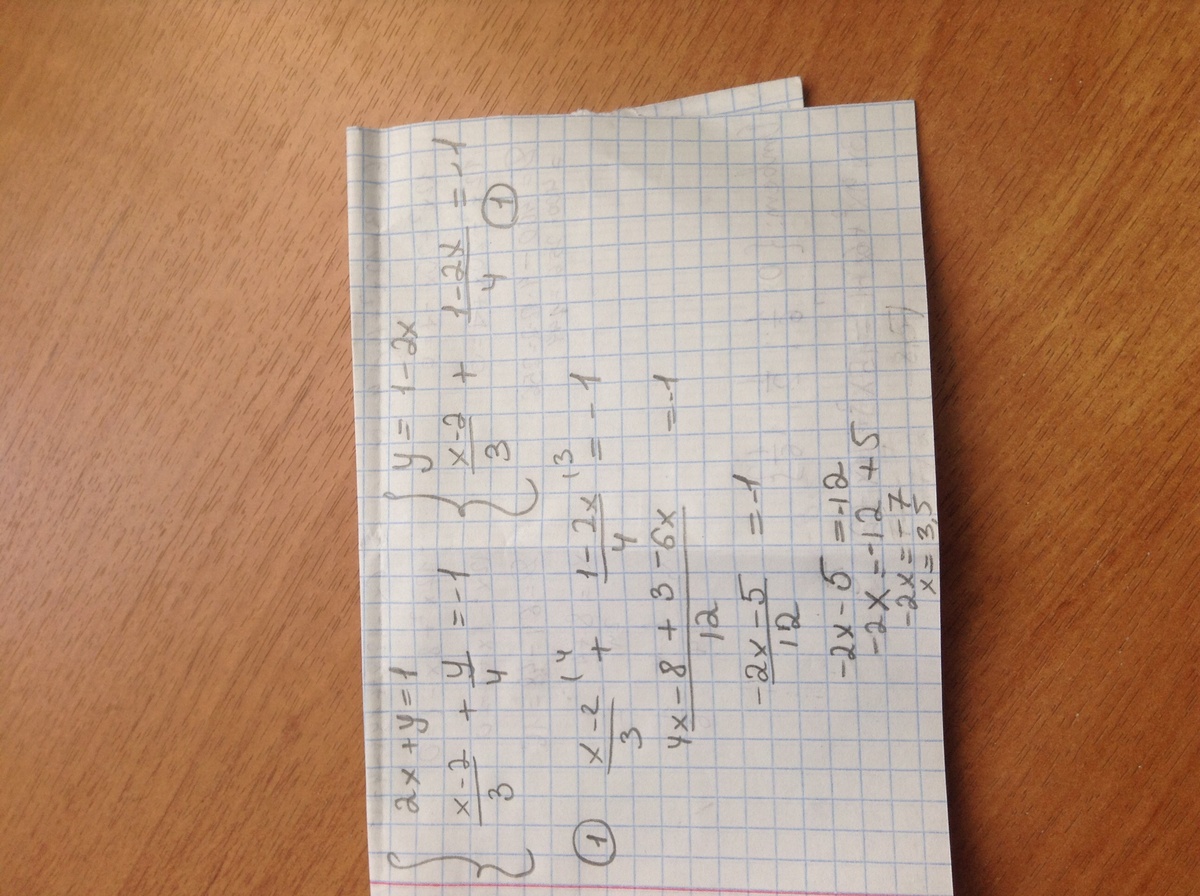 { 2x+y=1
{ (x-2)/3 + y/4 = -1
{ y=1-2x
{ (x-2)/3 + (1-2x)/4 = -1 ①
① (x-2)/3 |4 + (1-2x)/4 |3 = -1
(4x-8+3-6x)/12 = -1
(-2x-5)/12 = -1
-2x-5=-12
-2x=-12+5
-2x=-7
x=3,5